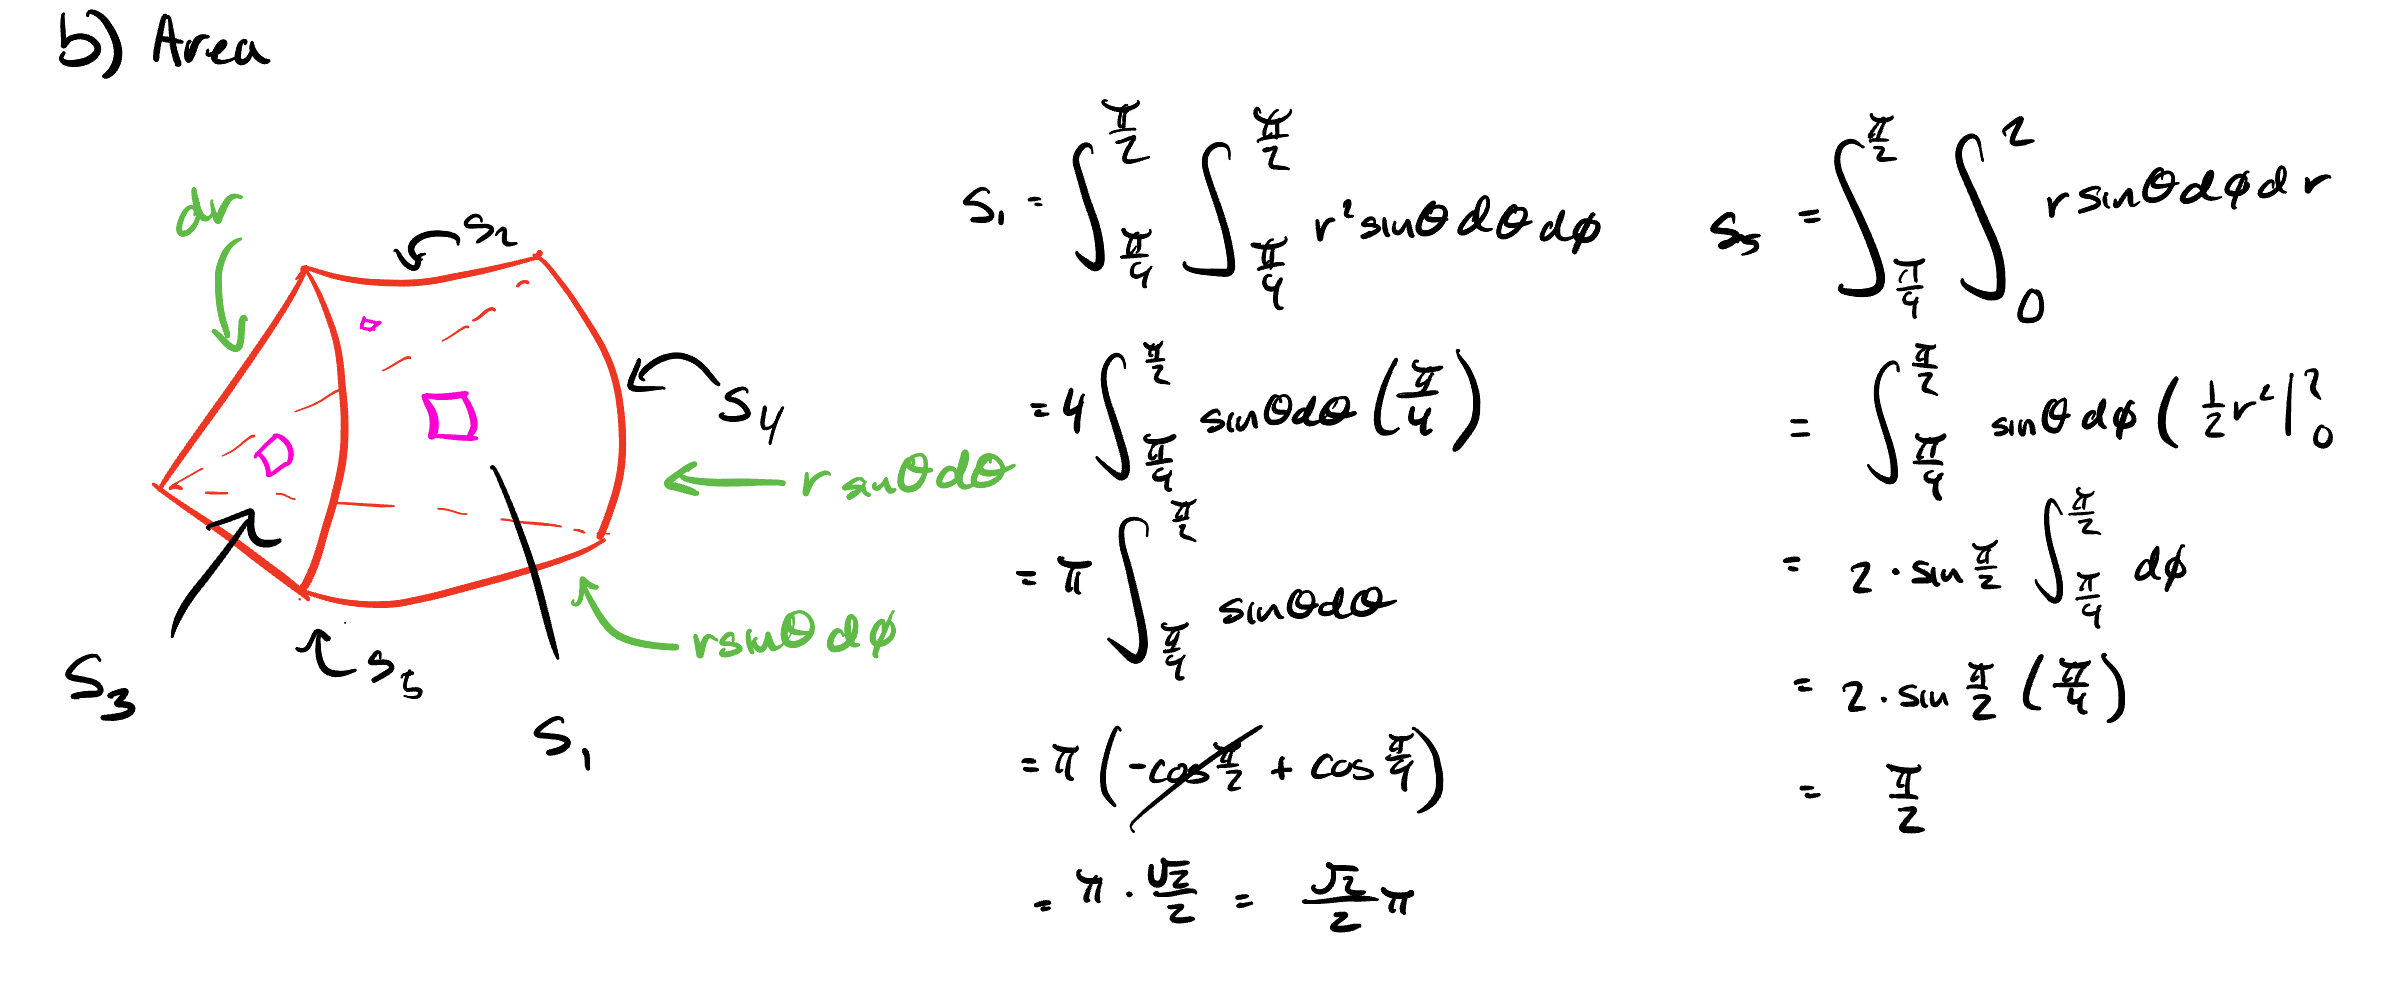 b) Area
dr
S₂
S₄
r sinθdθ
rsinθ dφ
S₃
S₅
S₁
S₁ = ∫_{π/4}^{π/2} ∫_{π/4}^{π/2} r² sinθ dθ dφ
= 4 ∫_{π/4}^{π/2} sinθdθ (π/4)
= π ∫_{π/4}^{π/2} sinθdθ
= π (-cos π/2 + cos π/4)
= π · √2/2 = √2/2 π
S₅ = ∫_{π/4}^{π/2} ∫_0^2 r sinθ dφ dr
= ∫_{π/4}^{π/2} sinθ dφ ( ½ r² |_0^2
= 2 · sin π/2 ∫_{π/4}^{π/2} dφ
= 2 · sin π/2 (π/4)
= π/2